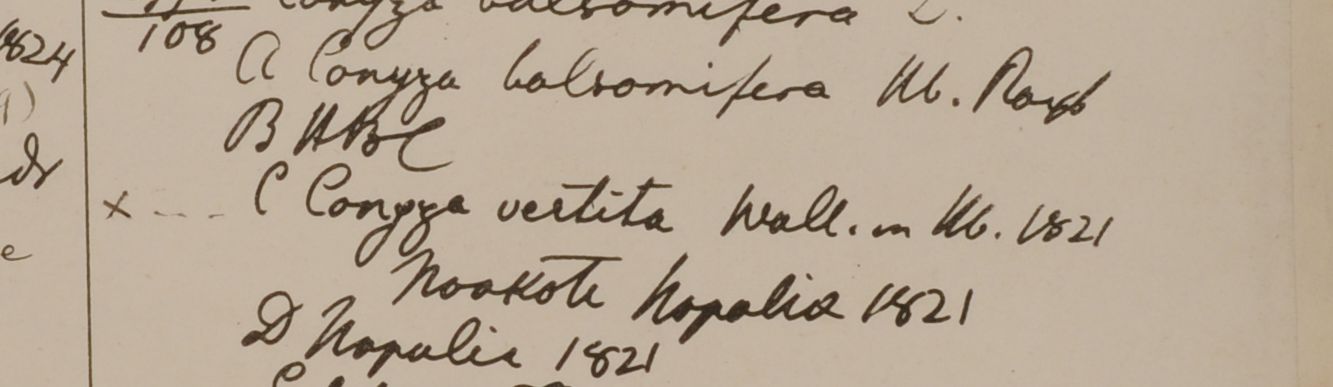 108 Conyza balsomifera L.
1824
A Conyza balsomifera Hb. Roxb
B HBC
C Conyza vestita Wall. in Hb. 1821
Noakote Napalia 1821
D Napalia 1821